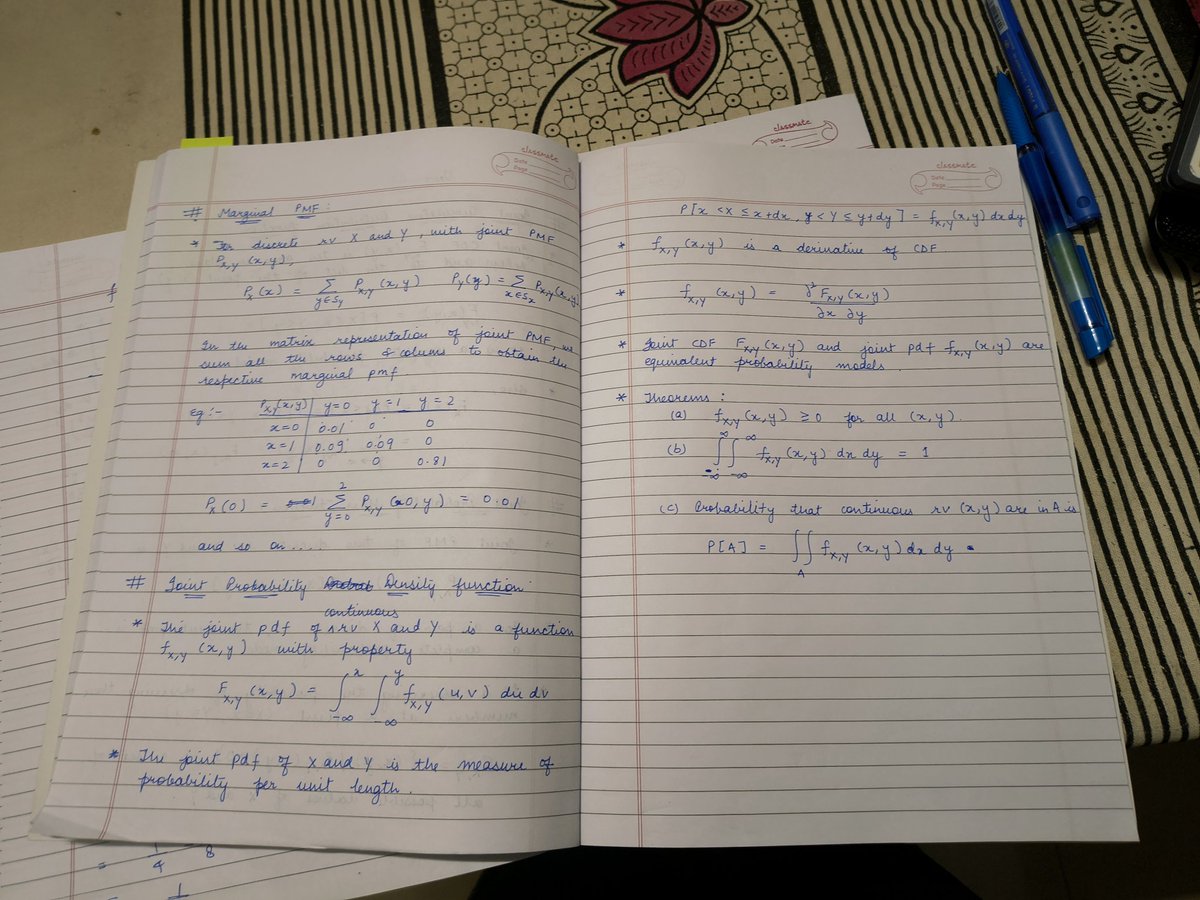 classmate
Date
Page
# Marginal PMF :
* For discrete rv X and Y, with joint PMF
P_{X,Y} (x,y),
P_X (x) = Σ_{y∈S_Y} P_{X,Y} (x,y) P_Y (y) = Σ_{x∈S_X} P_{X,Y} (x,y
In the matrix representation of joint PMF, we
sum all the rows & columns to obtain the
respective marginal pmf.
eg :- P_{X,Y}(x,y) y=0 y=1 y=2
x=0 0.01 0 0
x=1 0.09 0.09 0
x=2 0 0 0.81
P_X (0) = Σ_{y=0}^{2} P_{X,Y} (0, y) = 0.01
and so on ....
# Joint Probability Density function
continuous
* The joint pdf of ∧ rv X and Y is a function
f_{X,Y} (x,y) with property
F_{X,Y} (x,y) = ∫_{-∞}^{x} ∫_{-∞}^{y} f_{X,Y} (u,v) du dv
* The joint pdf of X and Y is the measure of
probability per unit length.
= 1/4 8
= 1
classmate
Date
classmate
Date
Page
P[x < X ≤ x+dx, y < Y ≤ y+dy] = f_{X,Y} (x,y) dx dy
* f_{X,Y} (x,y) is a derivative of CDF
* f_{X,Y} (x,y) = ∂² F_{X,Y} (x,y) / ∂x ∂y
* Joint CDF F_{X,Y} (x,y) and joint pdf f_{X,Y} (x,y) are
equivalent probability models
* Theorems :
(a) f_{X,Y} (x,y) ≥ 0 for all (x,y).
(b) ∫_{-∞}^{∞} ∫_{-∞}^{∞} f_{X,Y} (x,y) dx dy = 1
(c) Probability that continuous rv (x,y) are in A is
P[A] = ∫∫_A f_{X,Y} (x,y) dx dy